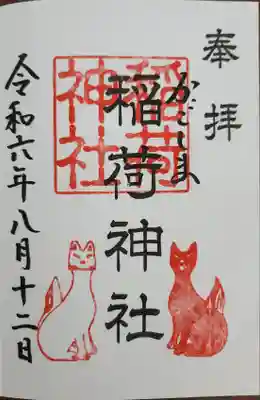 奉拝
稲荷神社
稲荷
神社
令和六年八月十二日